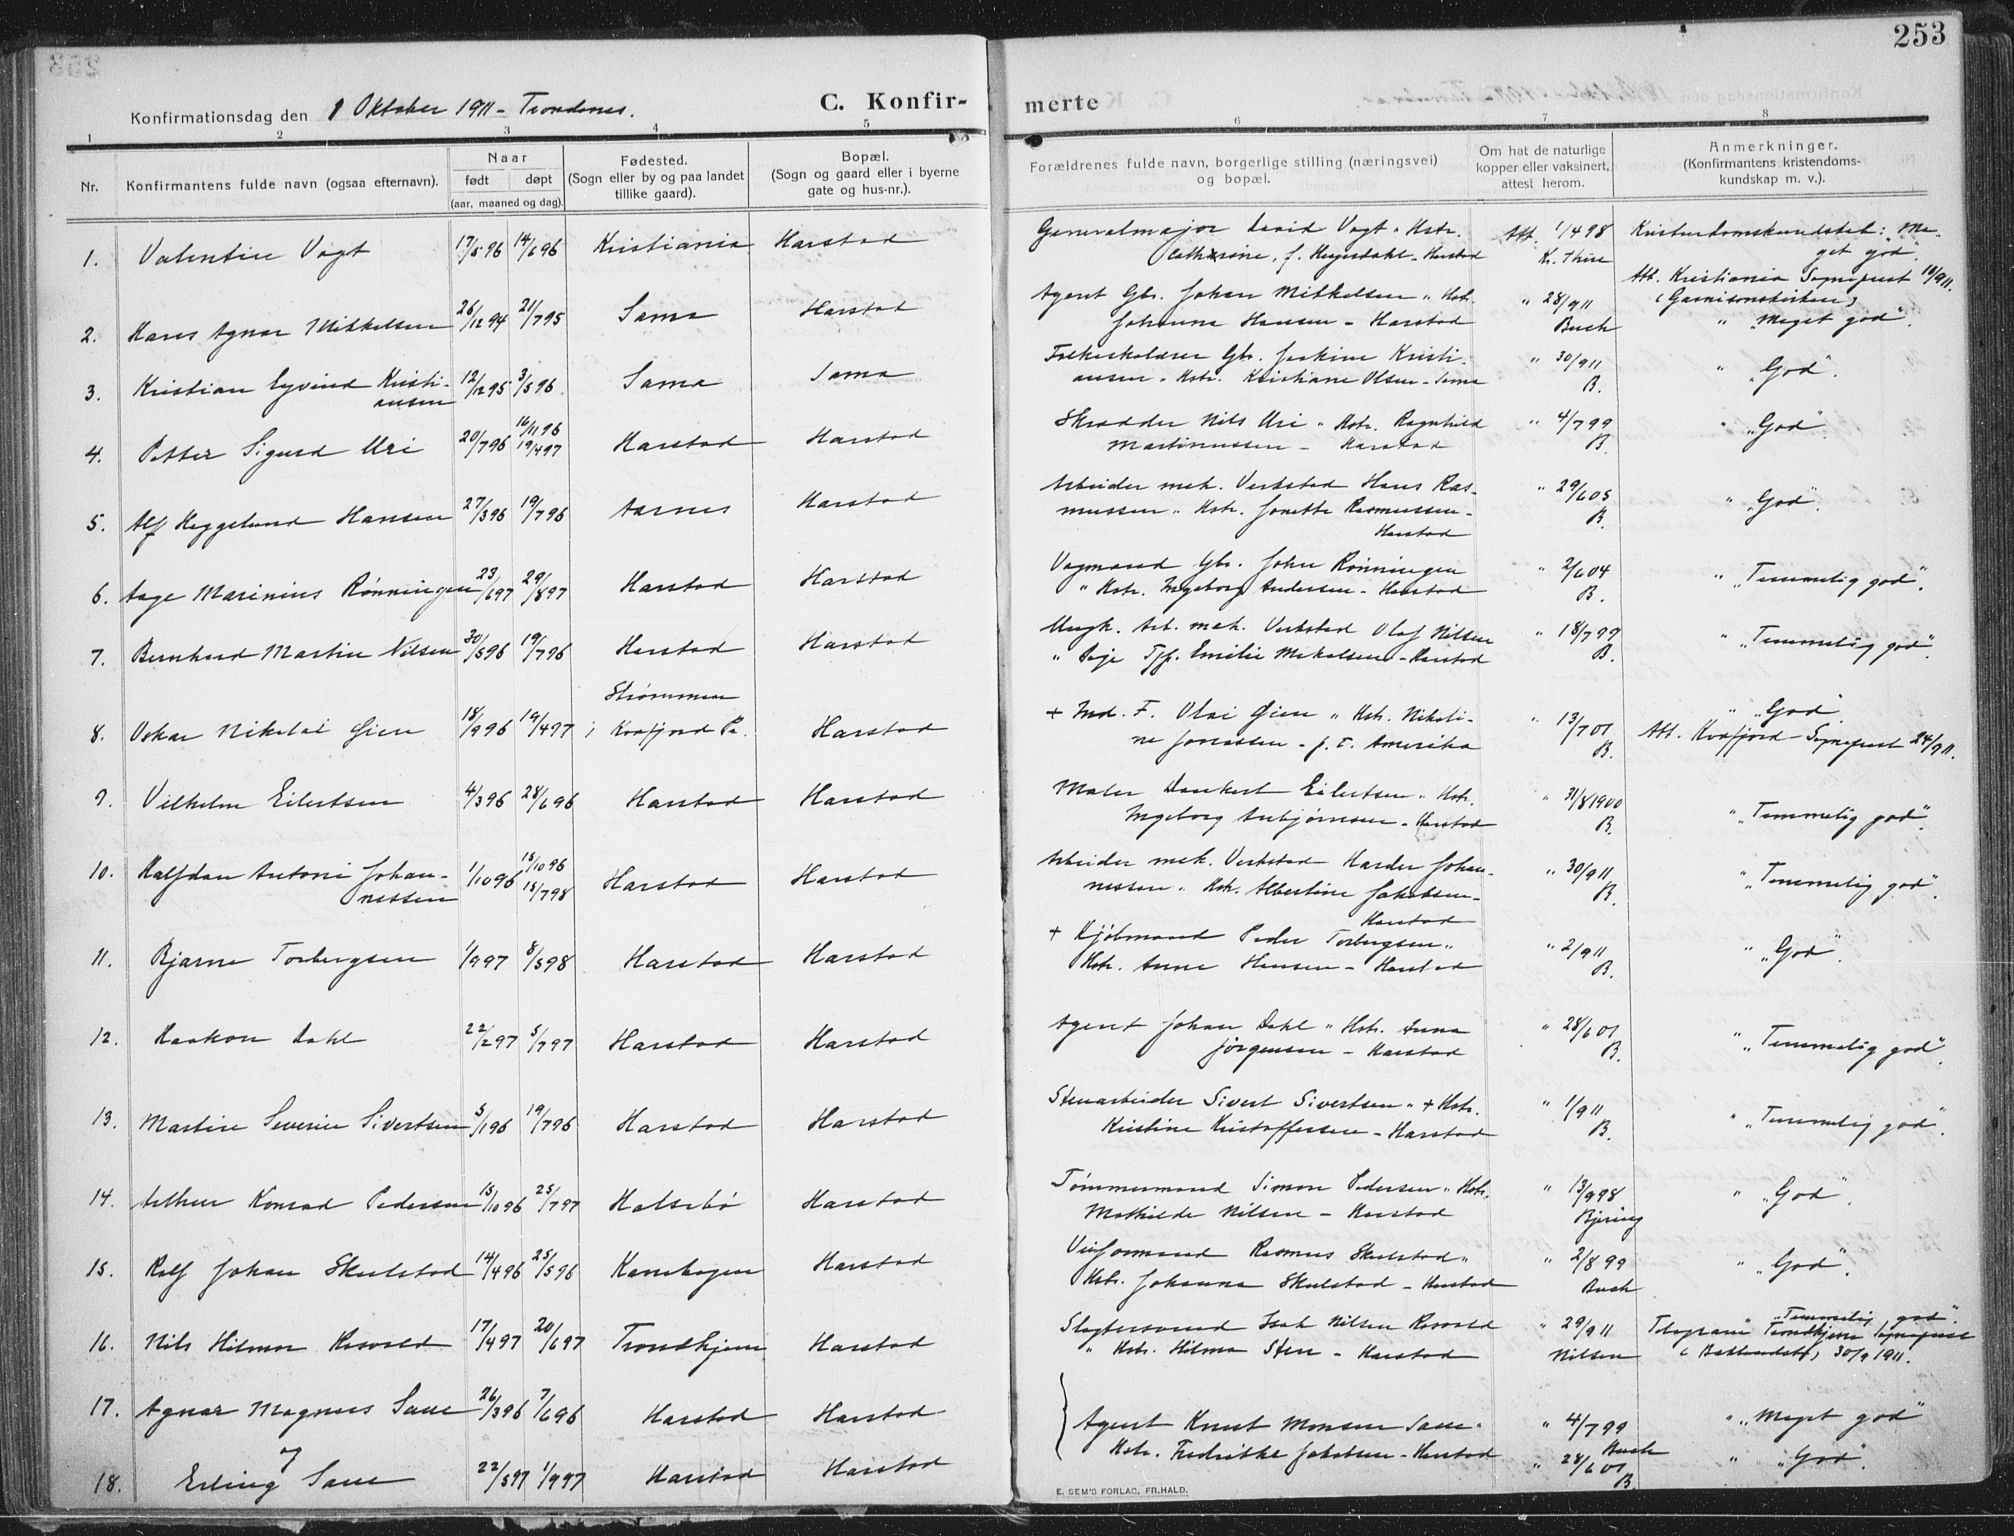 253
Konfirmationsdag den 1 Oktober 1911 - Trondenes.
C. Konfir-
merte
1 2 3 4 5 6 7 8
Nr.
Konfirmantens fulde navn (ogsaa efternavn).
Naar
født døpt
(aar, maaned og dag).
Fødested.
(Sogn eller by og paa landet
tillike gaard).
Bopæl.
(Sogn og gaard eller i byerne
gate og hus-nr.).
Forældrenes fulde navn, borgerlige stilling (næringsvei)
og bopæl.
Om hat de naturlige
kopper eller vaksinert,
attest herom.
Anmerkninger.
(Konfirmantens kristendoms-
kundskap m. v.).
1. Valentin Vogt 17/5 96 14/6 96 Kristiania Harstad Generalmajor David Vogt " Hstr. Att. 1/4 98 Kristendomskundskab: Me-
Cathrine, f. Heyerdahl - Harstad Kr. Thiis get god"
Att. Kristiania Sognepræst 18/9 11.
(Garnisonskirken)
2. Hans Agnar Mikkelsen 26/12 94 21/7 95 Sama Harstad Agent Gbr. Johan Mikkelsen " Hstr. " 28/9 11
Johanna Hansen - Harstad Buch " "Meget god".
3. Kristian Eyvind Kristi- 12/12 95 3/5 96 Sama Sama Folkeskolelærer Gbr. Joakim Kristi- " 30/9 11 " "God".
ansen ansen " Hstr. Kristiane Olsen - Sama B.
4. Petter Sigurd Uri 20/7 96 16/11 96 19/4 97 Harstad Harstad Skrædder Nils Uri " Hstr. Ragnhild " 4/7 99 " "God".
Martinussen - Harstad B.
5. Alf Heggelund Hansen 27/3 96 19/7 96 Aarnes Harstad Arbeider mek. Verksted Hans Ras- " 29/6 05 " "God".
mussen " Hstr. Jonette Rasmussen - B.
Harstad
6. Aage Marinius Rønningen 23/6 97 29/8 97 Harstad Harstad Vognmand Gbr. Johs Rønningen " 2/6 04 " "Temmelig god".
" Hstr. Ingeborg Andersen - Harstad B.
7. Bernhard Martin Nilsen 30/5 96 19/7 96 Harstad Harstad Ungk. Arb. mek. Verksted Olaf Nilsen " 18/7 99 " "Temmelig god".
" Pige Tjp. Emilie Mikalsen - Harstad B.
Strømmen
8. Oskar Nikolai Øien 18/9 96 19/4 97 i Kvæfjord Pr. Harstad + Ind. F. Olai Øien " Hstr. Nikoli- " 13/7 01 " "God".
ne Jonassen - p. t. Amerika B. Att. Kvæfjord Sognepræst 24/9 11.
9. Vilhelm Eilertsen 4/3 96 28/6 96 Harstad Harstad Maler Dankert Eilertsen " Hstr. " 31/8 1900 " "Temmelig god".
Ingeborg Anbjørnsen - Harstad B.
10. Halfdan Antoni Johan- 1/10 96 15/10 96 15/7 98 Harstad Harstad Arbeider mek. Verksted Harder Johan- " 30/9 11 " "Temmelig god".
nessen nessen " Hstr. Albertine Jakobsen - B.
Harstad
11. Bjarne Torbergsen 1/9 97 8/5 98 Harstad Harstad + Hjølmand Peder Torbergsen " " 2/9 11 " "God".
Hstr. Anne Hansen - Harstad B.
12. Haakon Dahl 22/2 97 5/7 97 Harstad Harstad Agent Johan Dahl " Hstr. Anna " 28/6 01 " "Temmelig god".
Jørgensen - Harstad B.
13. Martin Severin Sivertsen 5/1 96 19/7 96 Harstad Harstad Stenarbeider Sivert Sivertsen " + Hstr. " 1/9 11 " "Temmelig god".
Kristine Kristoffersen - Harstad B.
14. Arthur Konrad Pedersen 15/10 96 25/7 97 Halsebø Harstad Tømmermand Simon Pedersen " Hstr. " 13/9 98 " "God".
Mathilde Nilsen - Harstad Bjering
15. Rolf Johan Skulstad 14/4 96 25/5 96 Kanebogen Harstad Veiformand Rasmus Skulstad " " 2/8 99 " "God".
Hstr. Johanna Skulstad - Harstad Buch
16. Nils Hilmar Risvold 17/4 97 20/6 97 Trondhjem Harstad Slagtersvend Isak Nilsen Risvold " 29/9 11 "Temmelig god".
" Hstr. Hilma Sten - Harstad Nilsen Telegram Trondhjem Sognepræst
(Baklandet) 30/9 1911.
17. Agnar Magnus Saue 26/3 96 7/6 96 Harstad Harstad Agent Knut Monsen Saue " " 4/7 99 " "Meget god"
Hstr. Fredrikke Jakobsen - Harstad Buch
18. Erling Saue 22/5 97 1/9 97 Harstad Harstad " 28/6 01 " "God".
B.
E. SEM'S FORLAG, FR.HALD.